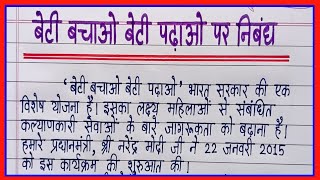 बेटी बचाओ बेटी पढ़ाओ पर निबंध
'बेटी बचाओ बेटी पढ़ाओ' भारत सरकार की एक
विशेष योजना है। इसका लक्ष्य महिलाओं से संबंधित
कल्याणकारी सेवाओं के बारे जागरूकता को बढ़ाना है।
हमारे प्रधानमंत्री, श्री नरेंद्र मोदी जी ने 22 जनवरी 2015
को इस कार्यक्रम की शुरुआत की।